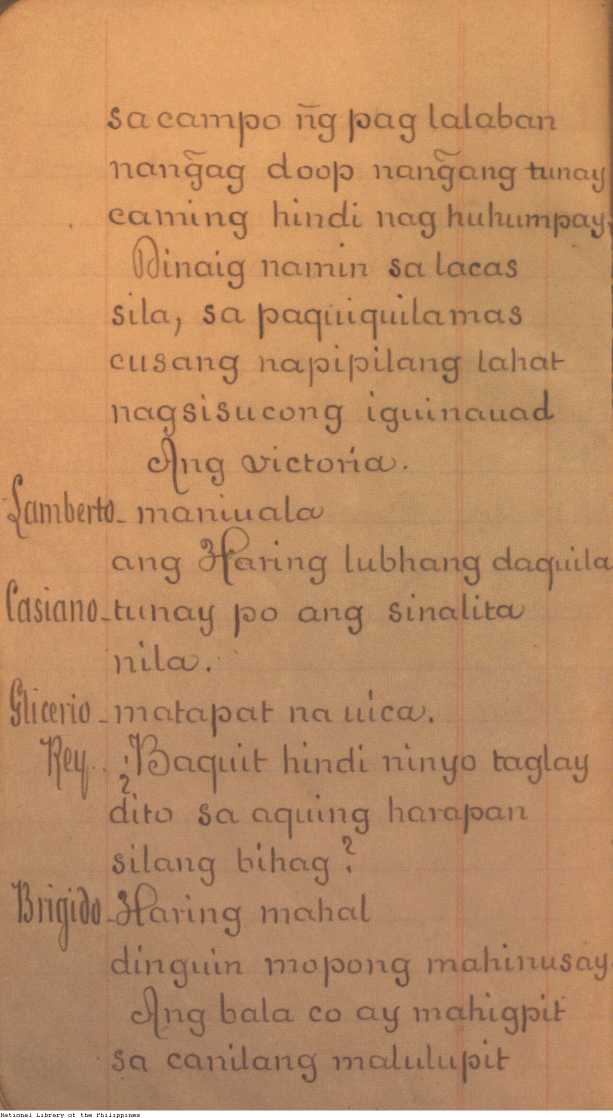 sa campo ñg pag lalaban
nang̃ag doop nang̃ang tunay
caming hindi nag huhumpay,
Dinaig namin sa lacas
sila, sa paquiquilamas
cusang napipilang lahat
nagsisucong iguinauad
Ang victoria.
Lamberto_ maniuala
ang Haring lubhang daquila
Casiano_tunay po ang sinalita
nila.
Glicerio_matapat na uica.
Rey.. ¿Baquit hindi ninyo taglay
dito sa aquing harapan
silang bihag?
Brigido_Haring mahal
dinguin mopong mahinusay.
Ang bala co ay mahigpit
sa canilang malulupit
National Library of the Philippines